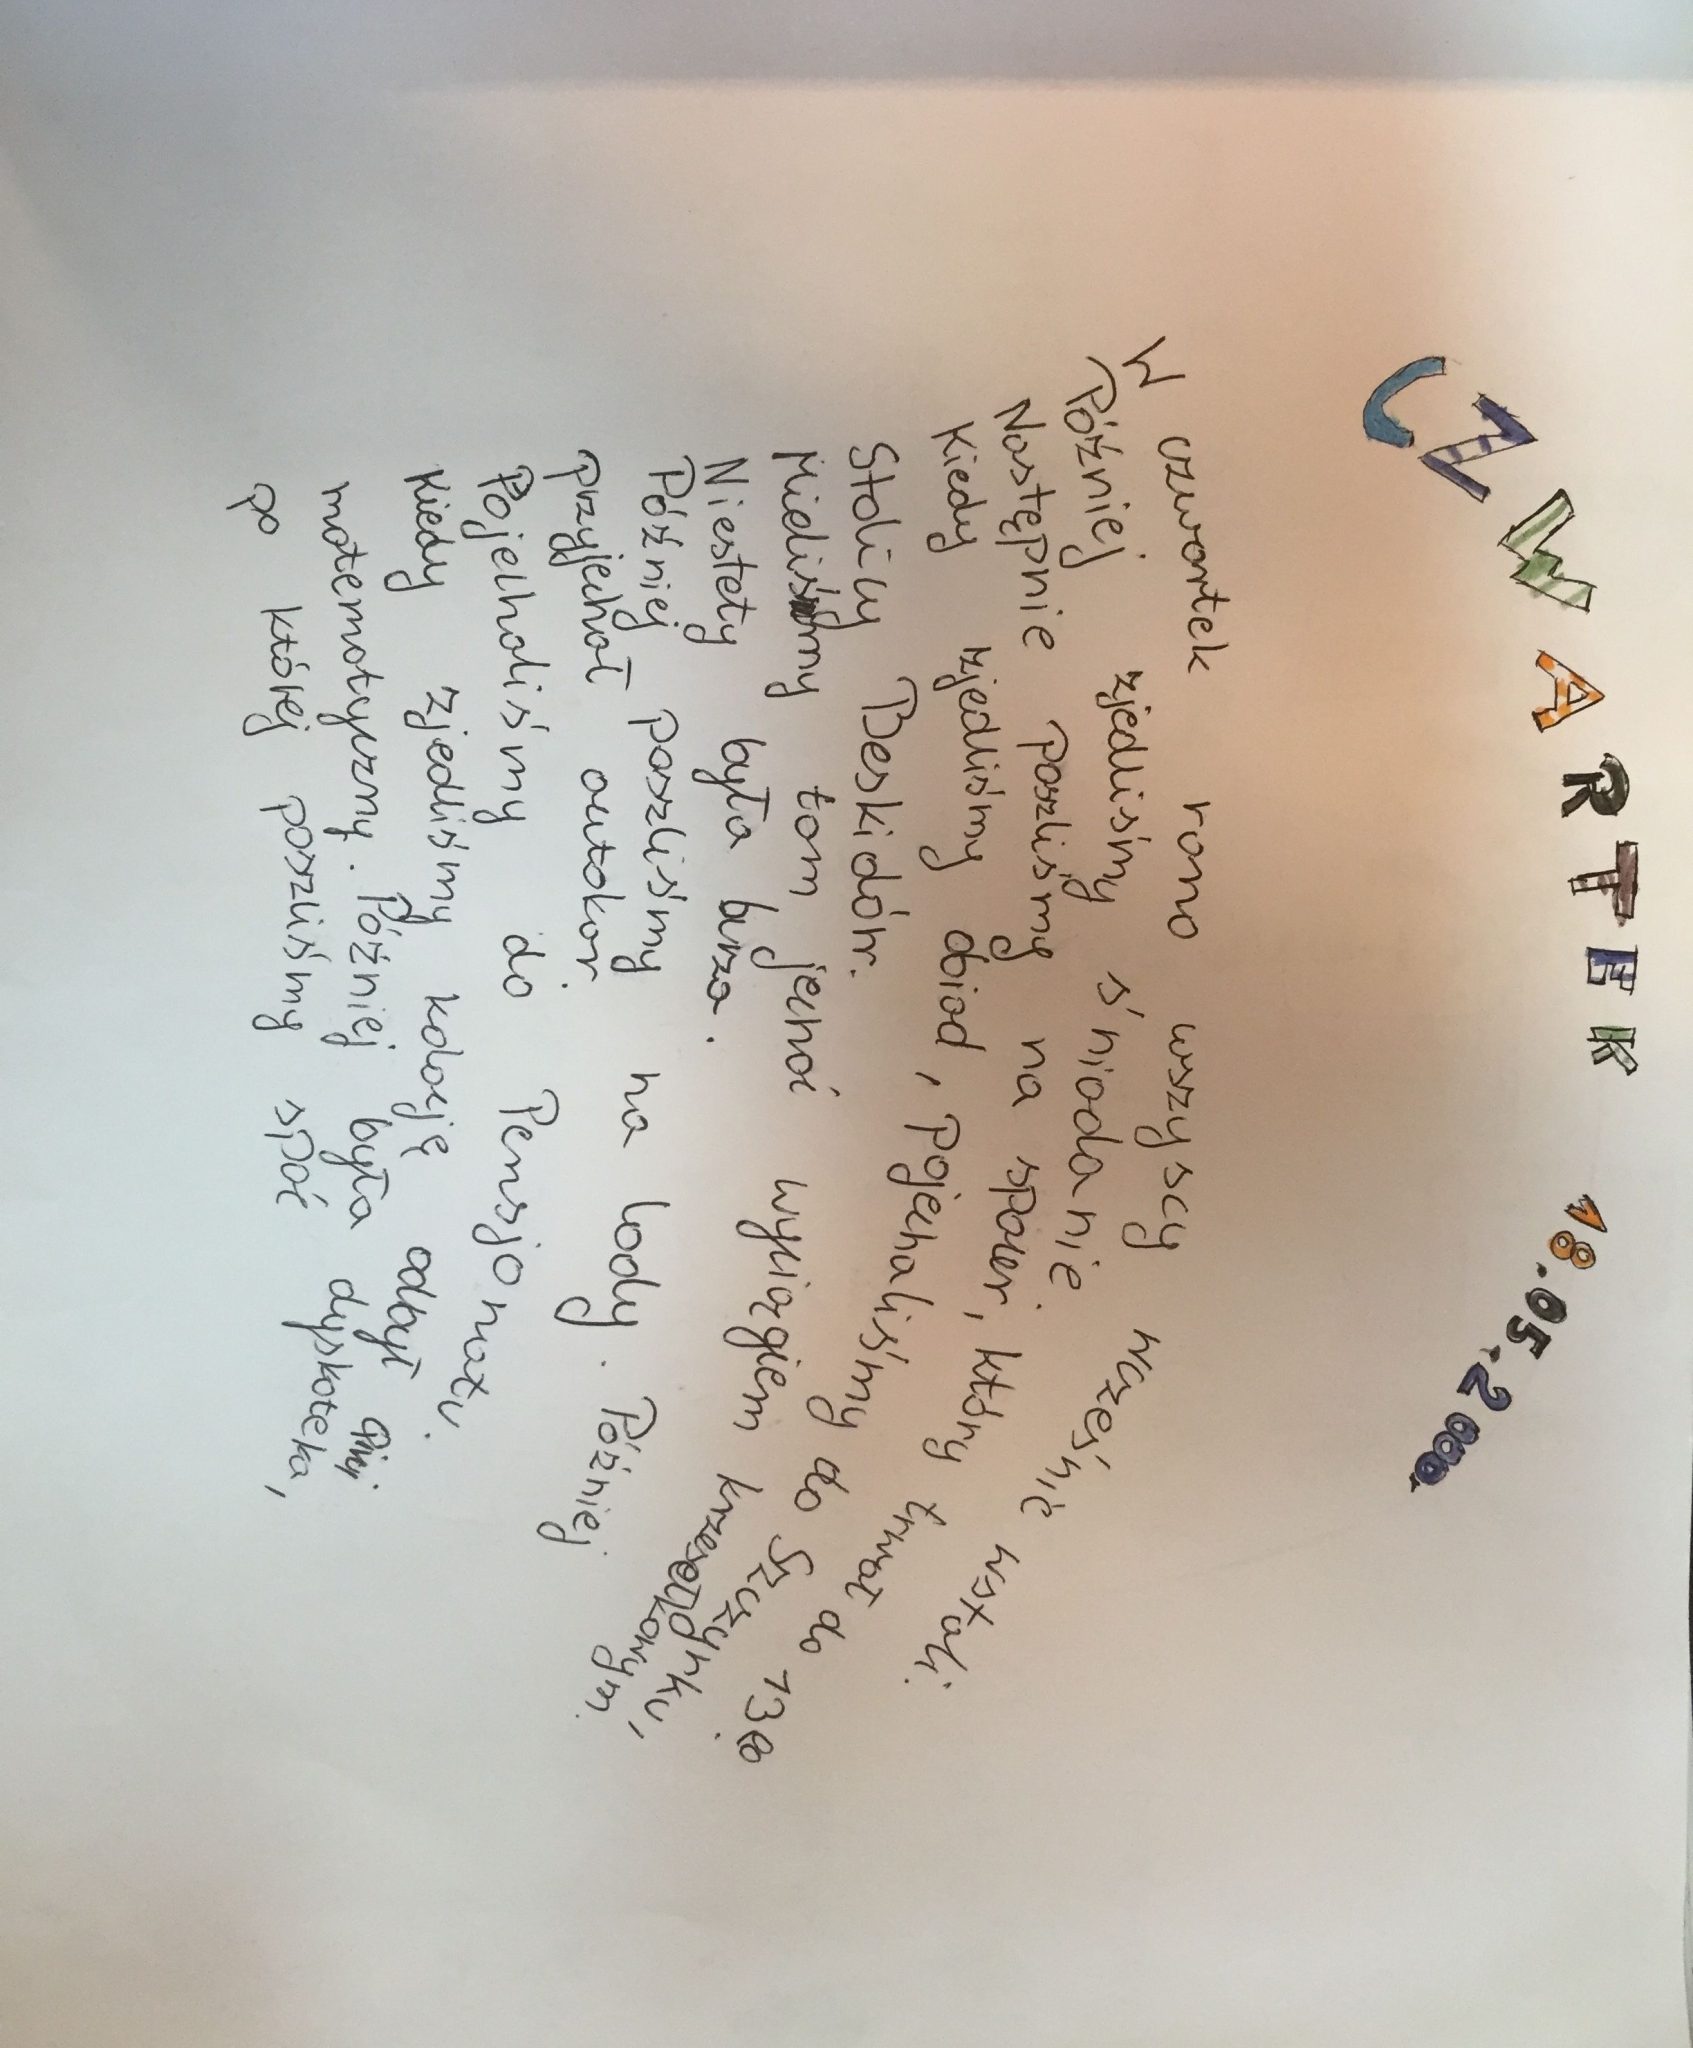 CZWARTEK 18.05.2000.
W czwartek rano wszyscy wcześnie wstali.
Później zjedliśmy śniadanie.
Następnie poszliśmy na spacer, który trwał do 13:00
Kiedy zjedliśmy obiad, Pojechaliśmy do Szczyrku,
Stolicy Beskidów.
Mieliśmy tam jechać wyciągiem krzesełkowym.
Niestety była burza.
Później poszliśmy na lody. Później
przyjechał autokar.
Pojechaliśmy do Pensjonatu.
Kiedy zjedliśmy kolację odbył
matematyczny. Później była dyskoteka,
po której poszliśmy spać